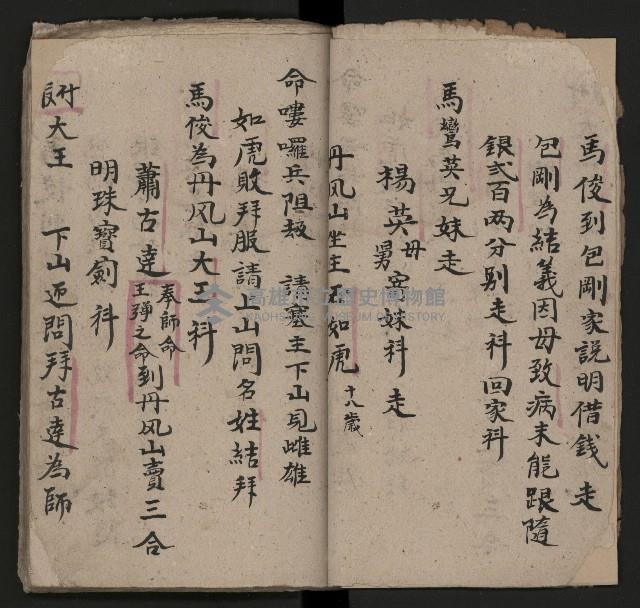 馬俊到包剛家説明借錢 走
包剛為結義因母致病未能跟隨
銀弍百两分别走科回家科
馬鸞英兄妹走
楊英母舅 家妹科 走
丹风山坐主 王如虎 十八歲
命嘍囉兵阻 請寨主下山見雌雄
如虎敗拜服請上山問名姓結拜
馬俊為丹风山大王科
蕭古達奉師命王彈之命到丹风山賣三合
明珠寶劍科
大王 下山迎問拜古達為師
高雄市立歷史博物館
KAOHSIUNG MUSEUM OF HISTORY